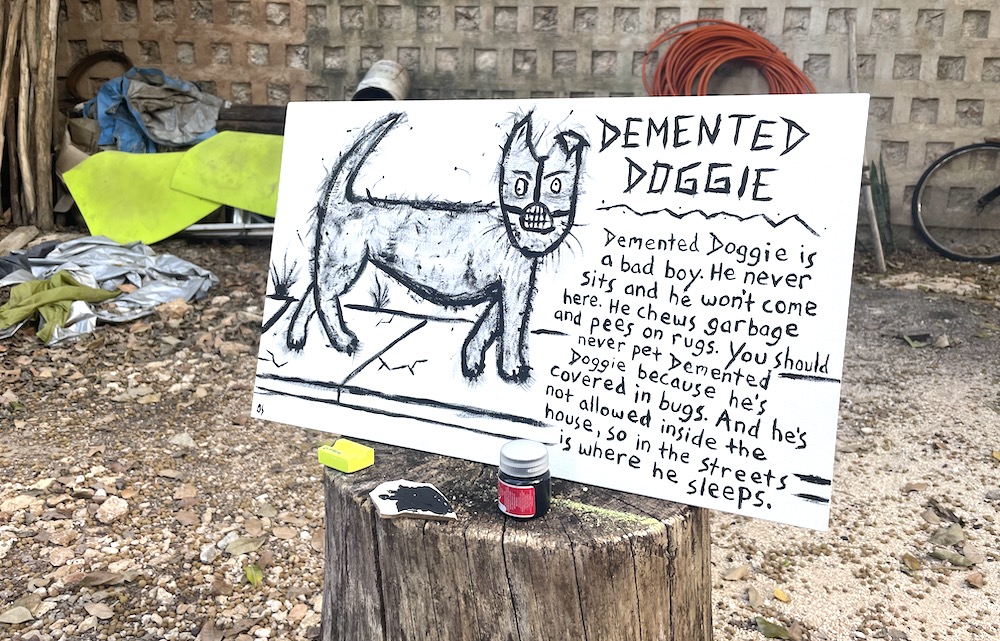 DEMENTED
DOGGIE
Demented Doggie is
a bad boy. He never
sits and he won't come
here. He chews garbage
and pees on rugs. You should
never pet Demented
Doggie because he's
covered in bugs. And he's
not allowed inside the
house, so in the streets
is where he sleeps.